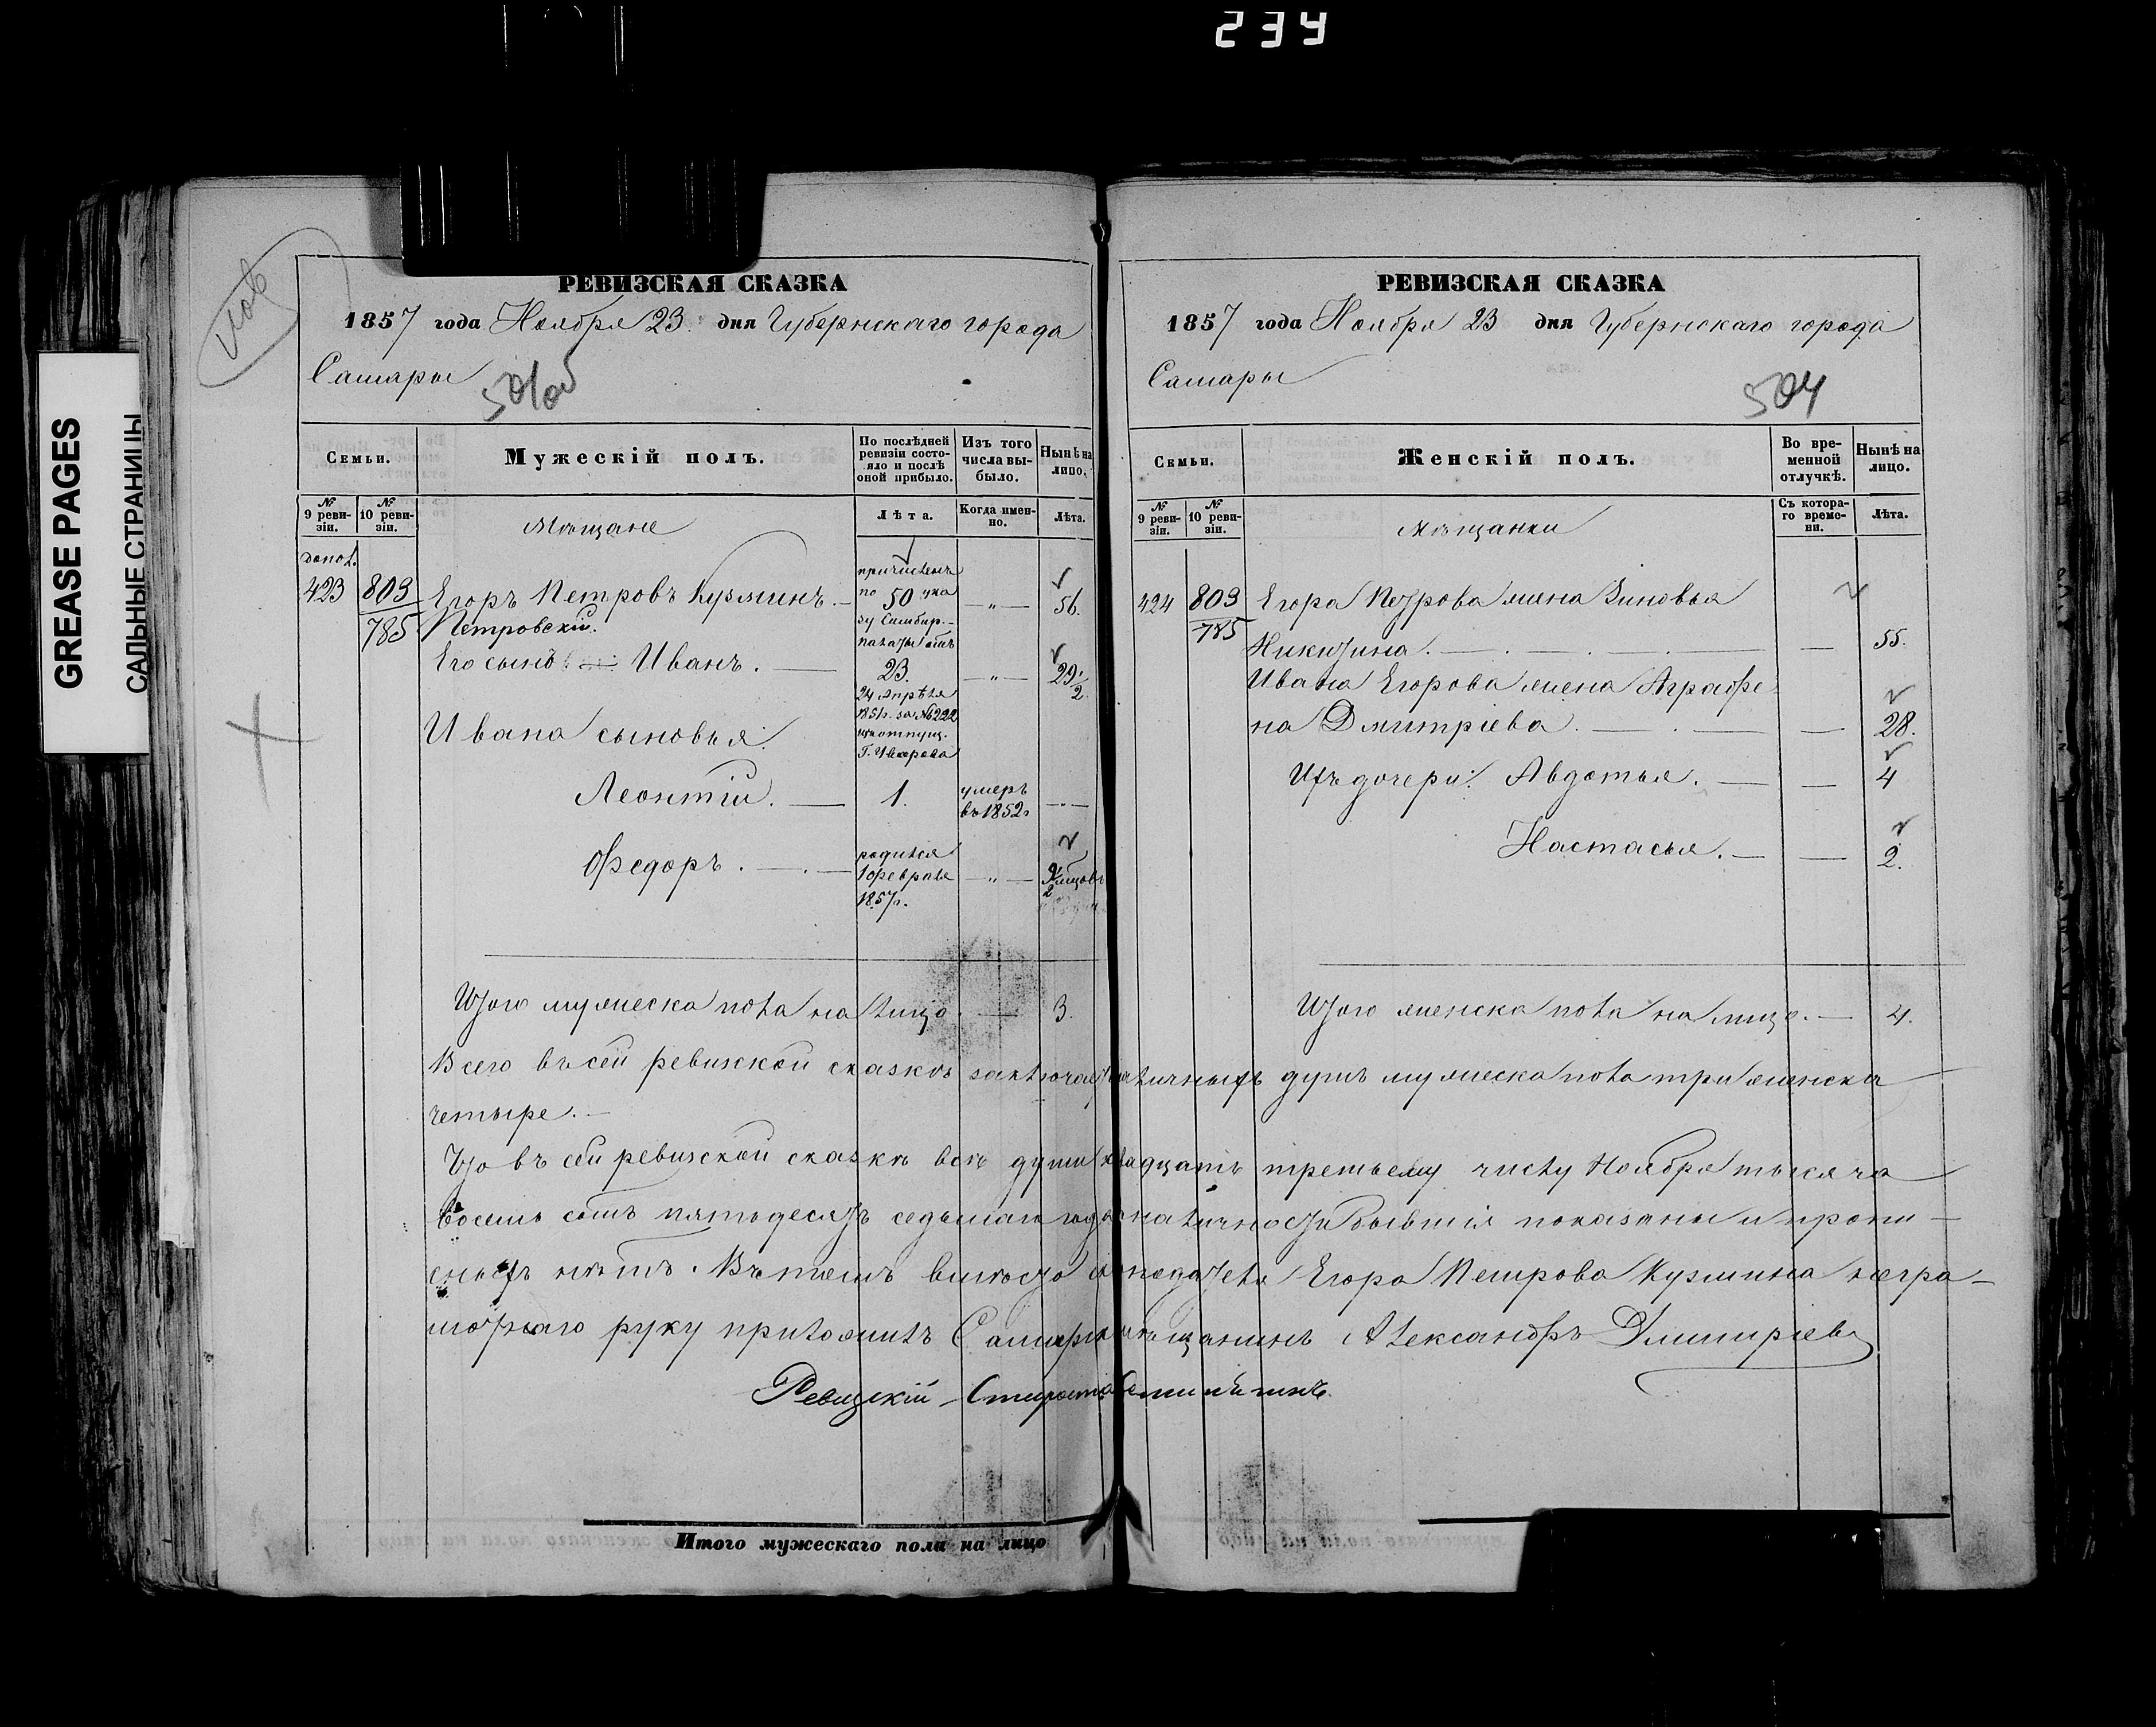 234
GREASE PAGES
САЛЬНЫЕ СТРАНИЦЫ
РЕВИЗСКАЯ СКАЗКА
1857 года Ноября 23 дня Губернскаго города
Самары
Семьи.
Мужескій полъ.
По послѣдней ревизіи состояло и послѣ оной прибыло.
Изъ того числа выбыло.
Нынѣ на лицо.
№ 9 ревизіи.
№ 10 ревизіи.
Мѣщане
Лѣта.
Когда именно.
Лѣта.
допол.
423
803
785
Егоръ Петровъ Кузминъ.
Петровскій.
причисленъ
по 50 ука
зу Симбир.
палаты отъ
56.
Его сынъ Иванъ.
23.
29 1/2
24 Апрѣля
1851г. за №222
изъ отпущ.
Г.
Ивана сыновья:
Леонтій.
1.
умеръ
въ 1852г
Федоръ.
родился
1 Февраля
1857г.
9 1/2 мѣсцовъ
Итого мужеска пола на лицо 3.
РЕВИЗСКАЯ СКАЗКА
1857 года Ноября 23 дня Губернскаго города
Самары
504
Семьи.
Женскій полъ.
Во временной отлучкѣ.
Нынѣ на лицо.
№ 9 ревизіи.
№ 10 ревизіи.
Мѣщанки
Съ котораго времени.
Лѣта.
424
803
785
Егора Петрова жена Зиновья
Никитина. 55.
Ивана Егорова жена Аграфе
на Дмитріева. 28.
Ихъ дочери: Авдотья. 4
Настасья. 2.
Итого женска пола на лицо. 4.
Всего въ сей ревизской сказкѣ заключается наличныхъ душъ мужеска пола три женска
четыре.
Что въ сей ревизской сказкѣ всѣ души къ двадцать третьему числу Ноября тысяча
восемь сотъ пятьдесятъ седьмаго года на личности бывшія показаны и пропи
сныхъ нѣтъ. Въ томъ вмѣсто подателя Егора Петрова Кузмина негра-
мотнаго руку приложилъ Самарскій мѣщанинъ Александръ Дмитріевъ
Ревизскій Староста
Итого мужескаго пола на лицо